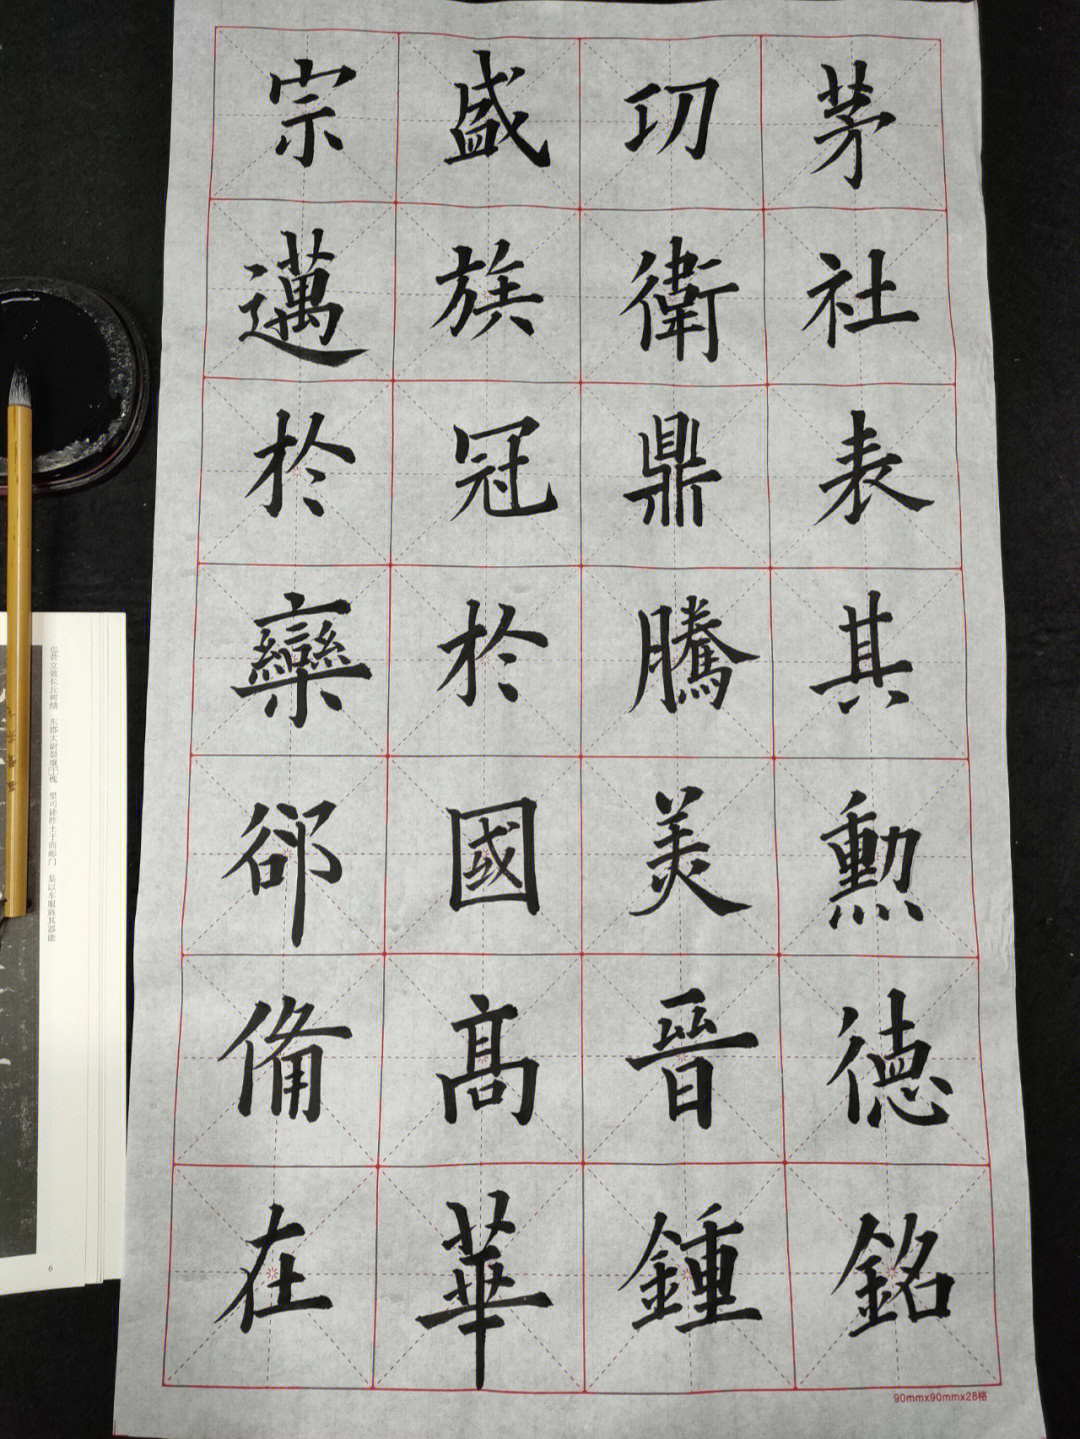 茅社表其勲德銘
功衛鼎騰美晉鍾
盛族冠於國高華
宗邁於欒郤備在
90mmx90mmx28格
6